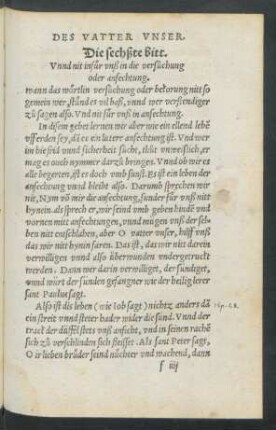 DES VATTER VNSER.
Die sechßte bitt.
Vnnd nit infür vnß in die versůchung
oder anfechtung.
wann das wörtlin versůchung oder bekorung nitt so
gemein wer, stånd es vil baß, vnnd wer verstendiger
zů sagen also. Vnd nit für vnß in anfechtung.
In disem gebet lernen wir aber wie ein ellend lebē
vff erden sey, dā es ein lutter anfechtung ist. Vnd wer
im hie frid vnnd sicherheit sůcht, thůt vnweißlich, er
mag es ouch nymmer darzů bringen. Vnnd ob wir es
alle begerten, ist es doch vmb sunst. Es ist ein leben der
anfechtung vnnd bleibt also. Darumb sprechen wir
nit, Nym vō mir die anfechtung, sunder für vnß nitt
hynein. als sprech er, wir sind vmb geben hindē vnd
vornen mit anfechtungen, vnnd mügen vnß der selben
nitt entschlahen, aber O vatter vnser, hilff vnß
das wir nitt hynin faren. Das ist, das wir nitt darein
verwilligen vnnd also überwunden vndergetruckt
werden. Dann wer darin verwilligt, der sündiget,
vnnd würt der sünden gefangner wie der heilig lerer
sant Paulus sagt.
Also ist dis leben (wie Iob sagt) nichtz anders dā
ein streit vnnd steter hader wider die sünd. Vnnd der
track der düffel stets vnß anficht, vnd in seinen rachē
sich zů verschlinden sich fleisset. Als sant Peter sagt,
O ir lieben brůder seind nüchter vnd wachend, dann
f iij